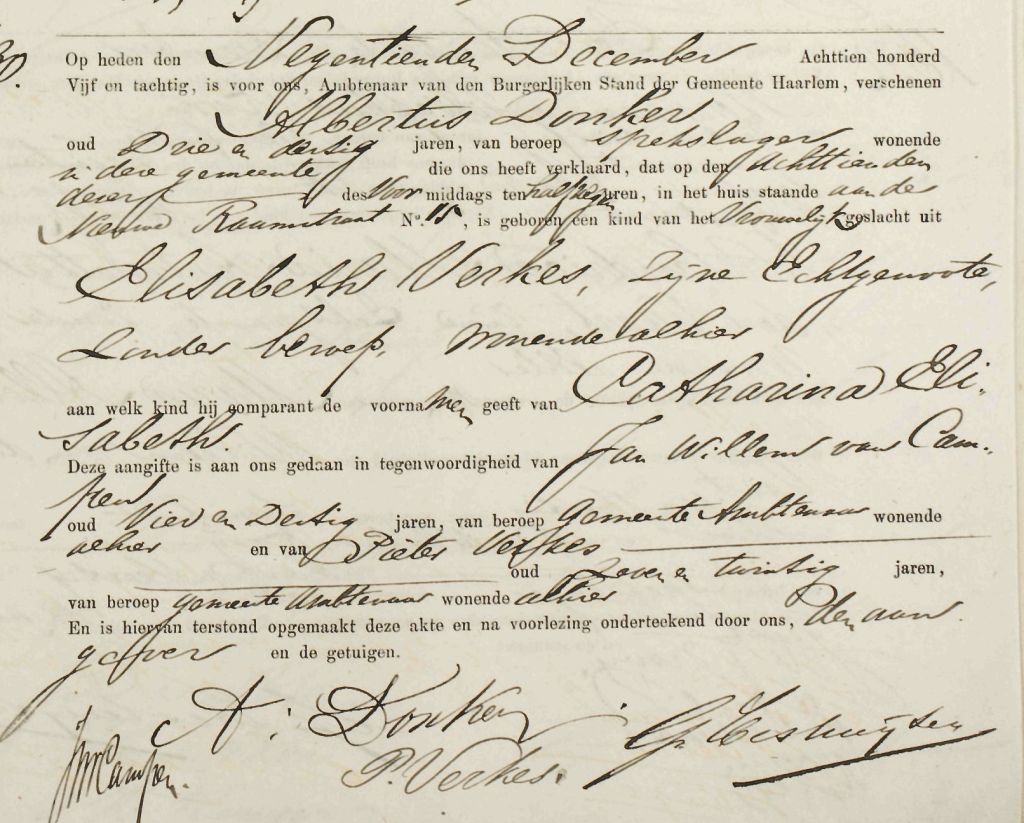 Op heden den Negentienden December Achttien honderd
Vijf en tachtig, is voor ons, Ambtenaar van den Burgerlijken Stand der Gemeente Haarlem, verschenen
Albertus Donker
oud Drie en dertig jaren, van beroep spekslager wonende
in deze gemeente die ons heeft verklaard, dat op den Achttienden
dezer des Voormiddags ten half negen uren, in het huis staande aan de
Nieuwe Raamstraat No. 15, is geboren een kind van het Vrouwelijk geslacht uit
Elisabeth Verkes, zijne Echtgenoote,
zonder beroep, wonende alhier
aan welk kind hij comparant de voornamen geeft van Catharina Eli-
sabeth.
Deze aangifte is aan ons gedaan in tegenwoordigheid van Jan Willem van Cam-
pen
oud Vier en Dertig jaren, van beroep gemeente Ambtenaar wonende
alhier en van Pieter Verkes
oud Zeven en twintig jaren,
van beroep gemeente Ambtenaar wonende alhier
En is hiervan terstond opgemaakt deze akte en na voorlezing onderteekend door ons, den aan
gever en de getuigen.
A. Donker
JWvCampen.
P. Verkes.